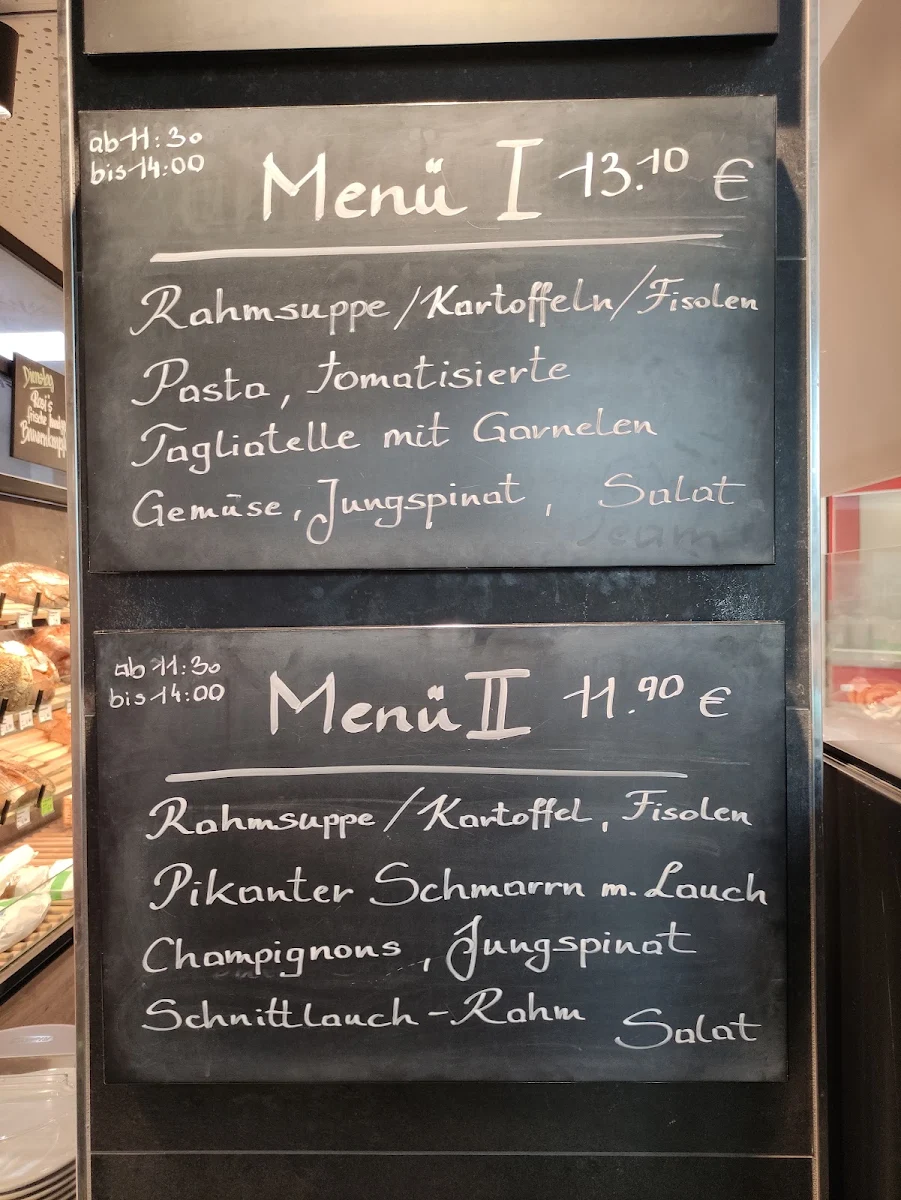 ab 11:30
bis 14:00
Menü I 13.10 €
Rahmsuppe/Kartoffeln/Fisolen
Pasta, tomatisierte
Tagliatelle mit Garnelen
Gemüse, Jungspinat, Salat
ab 11:30
bis 14:00
Menü II 11.90 €
Rahmsuppe/Kartoffel, Fisolen
Pikanter Schmarrn m. Lauch
Champignons, Jungspinat
Schnittlauch-Rahm Salat
Dienstag
Rosi's
frische